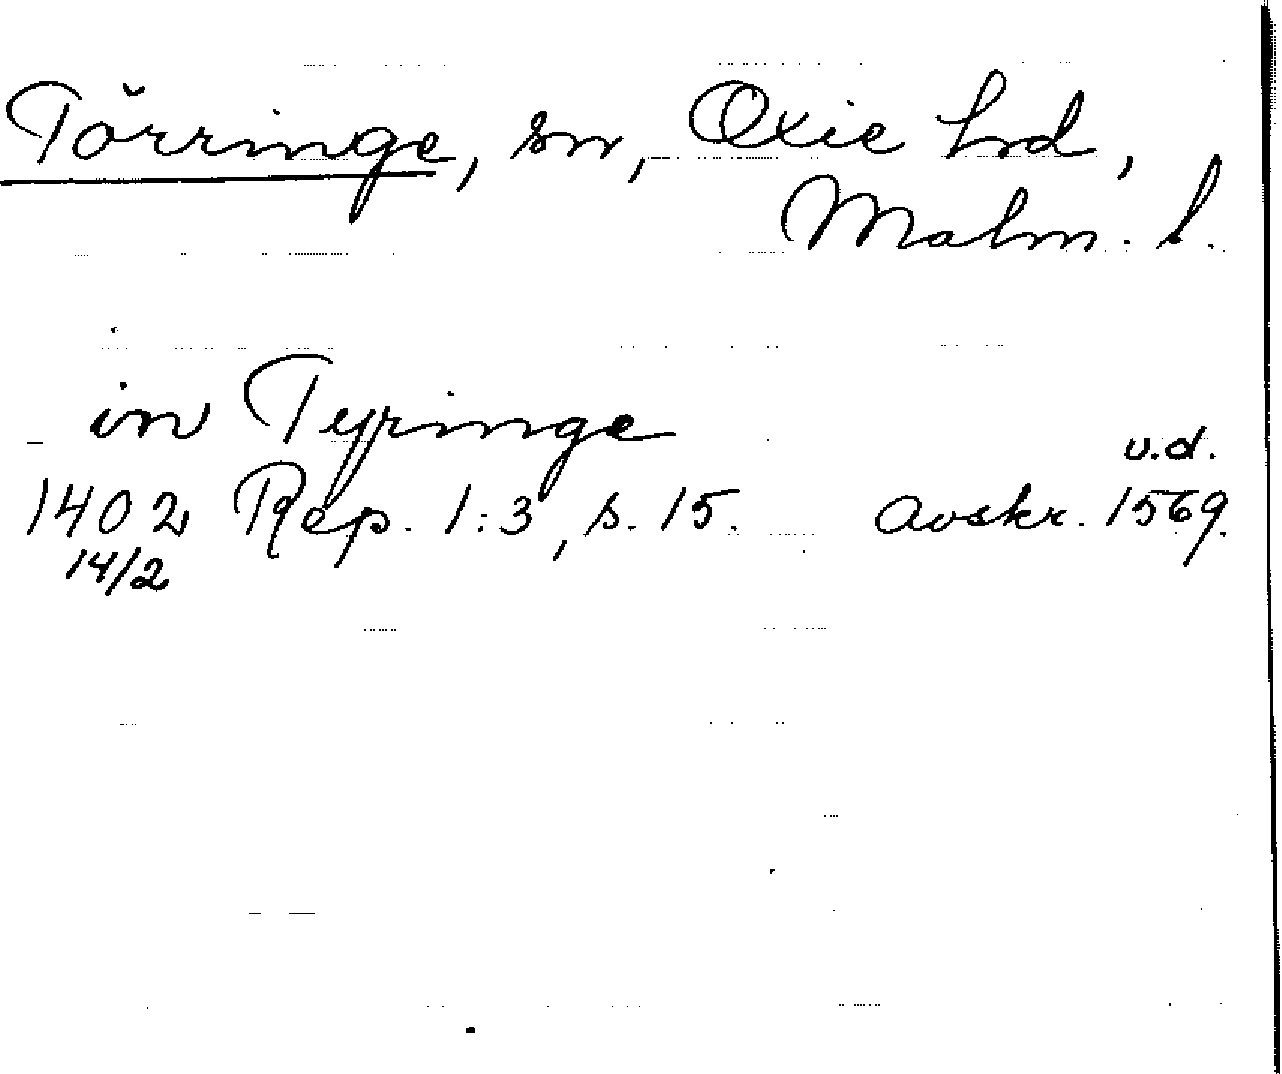 Törringe, sn, Oxie hd,
Malm. l.
in Tyringe
u.d.
1402 Rep. 1:3, s. 15. Avskr. 1569.
14/2